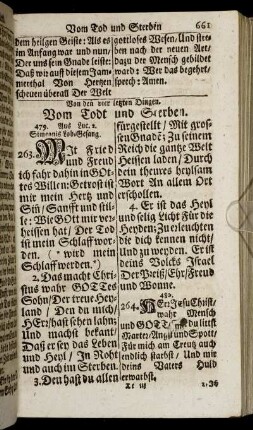 Vom Tod und Sterben 661
dem heilgen Geiste: Als es
im Anfang war und nun/
Der uns sein Gnade leiste:
Daß wir auff diesem Jam-
merthal Von Hertzen
scheuen überall Der Welt
gottloses Wesen/ Und stre-
ben nach der neuen Art/
dazu der Mensch gebildet
ward: Wer das begehrt/
sprech: Amen.
Von den vier letzten Dingen.
Vom Todt und Sterben.
479. Aus Luc. 2.
Simeonis Lob-Gesang.
263. Mit Fried
und Freud
ich fahr dahin in GOt-
tes Willen: Getrost ist
mir mein Hertz und
Sin/ Sanfft und stil-
le: Wie GOtt mir ver-
heissen hat: Der Tod
ist mein Schlaff wor-
den. (* wird mein
Schlaff werden.*)
2. Das macht Chri-
stus wahr GOTTes
Sohn/ Der treue Hey-
land/ Den du mich/
HErr/ hast sehen lahn/
Und machst bekant/
Daß er sey das Leben
und Heyl/ In Noht
und auch im Sterben.
3. Den hast du allen
fürgestellt/ Mit gros-
sen Gnaden: Zu seinem
Reich die gantze Welt
Heissen laden/ Durch
dein theures heylsam
Wort An allem Ort
erschollen.
4. Er ist das Heyl
und selig Licht Für die
Heyden: Zu erleuchten
die dich kennen nicht/
Und zu weyden. Er ist
deins Volcks Israel
Der Preiß/ Ehr/ Freud
und Wonne.
480.
264. HErr JEsu Christ/
wahr Mensch
und GOTT/ der du littst
Marter/ Angst und Spott/
Für mich am Creutz auch
endlich starbst/ Und mir
deins Vaters Huld
erwarbst.
Tt iij 2. Ich